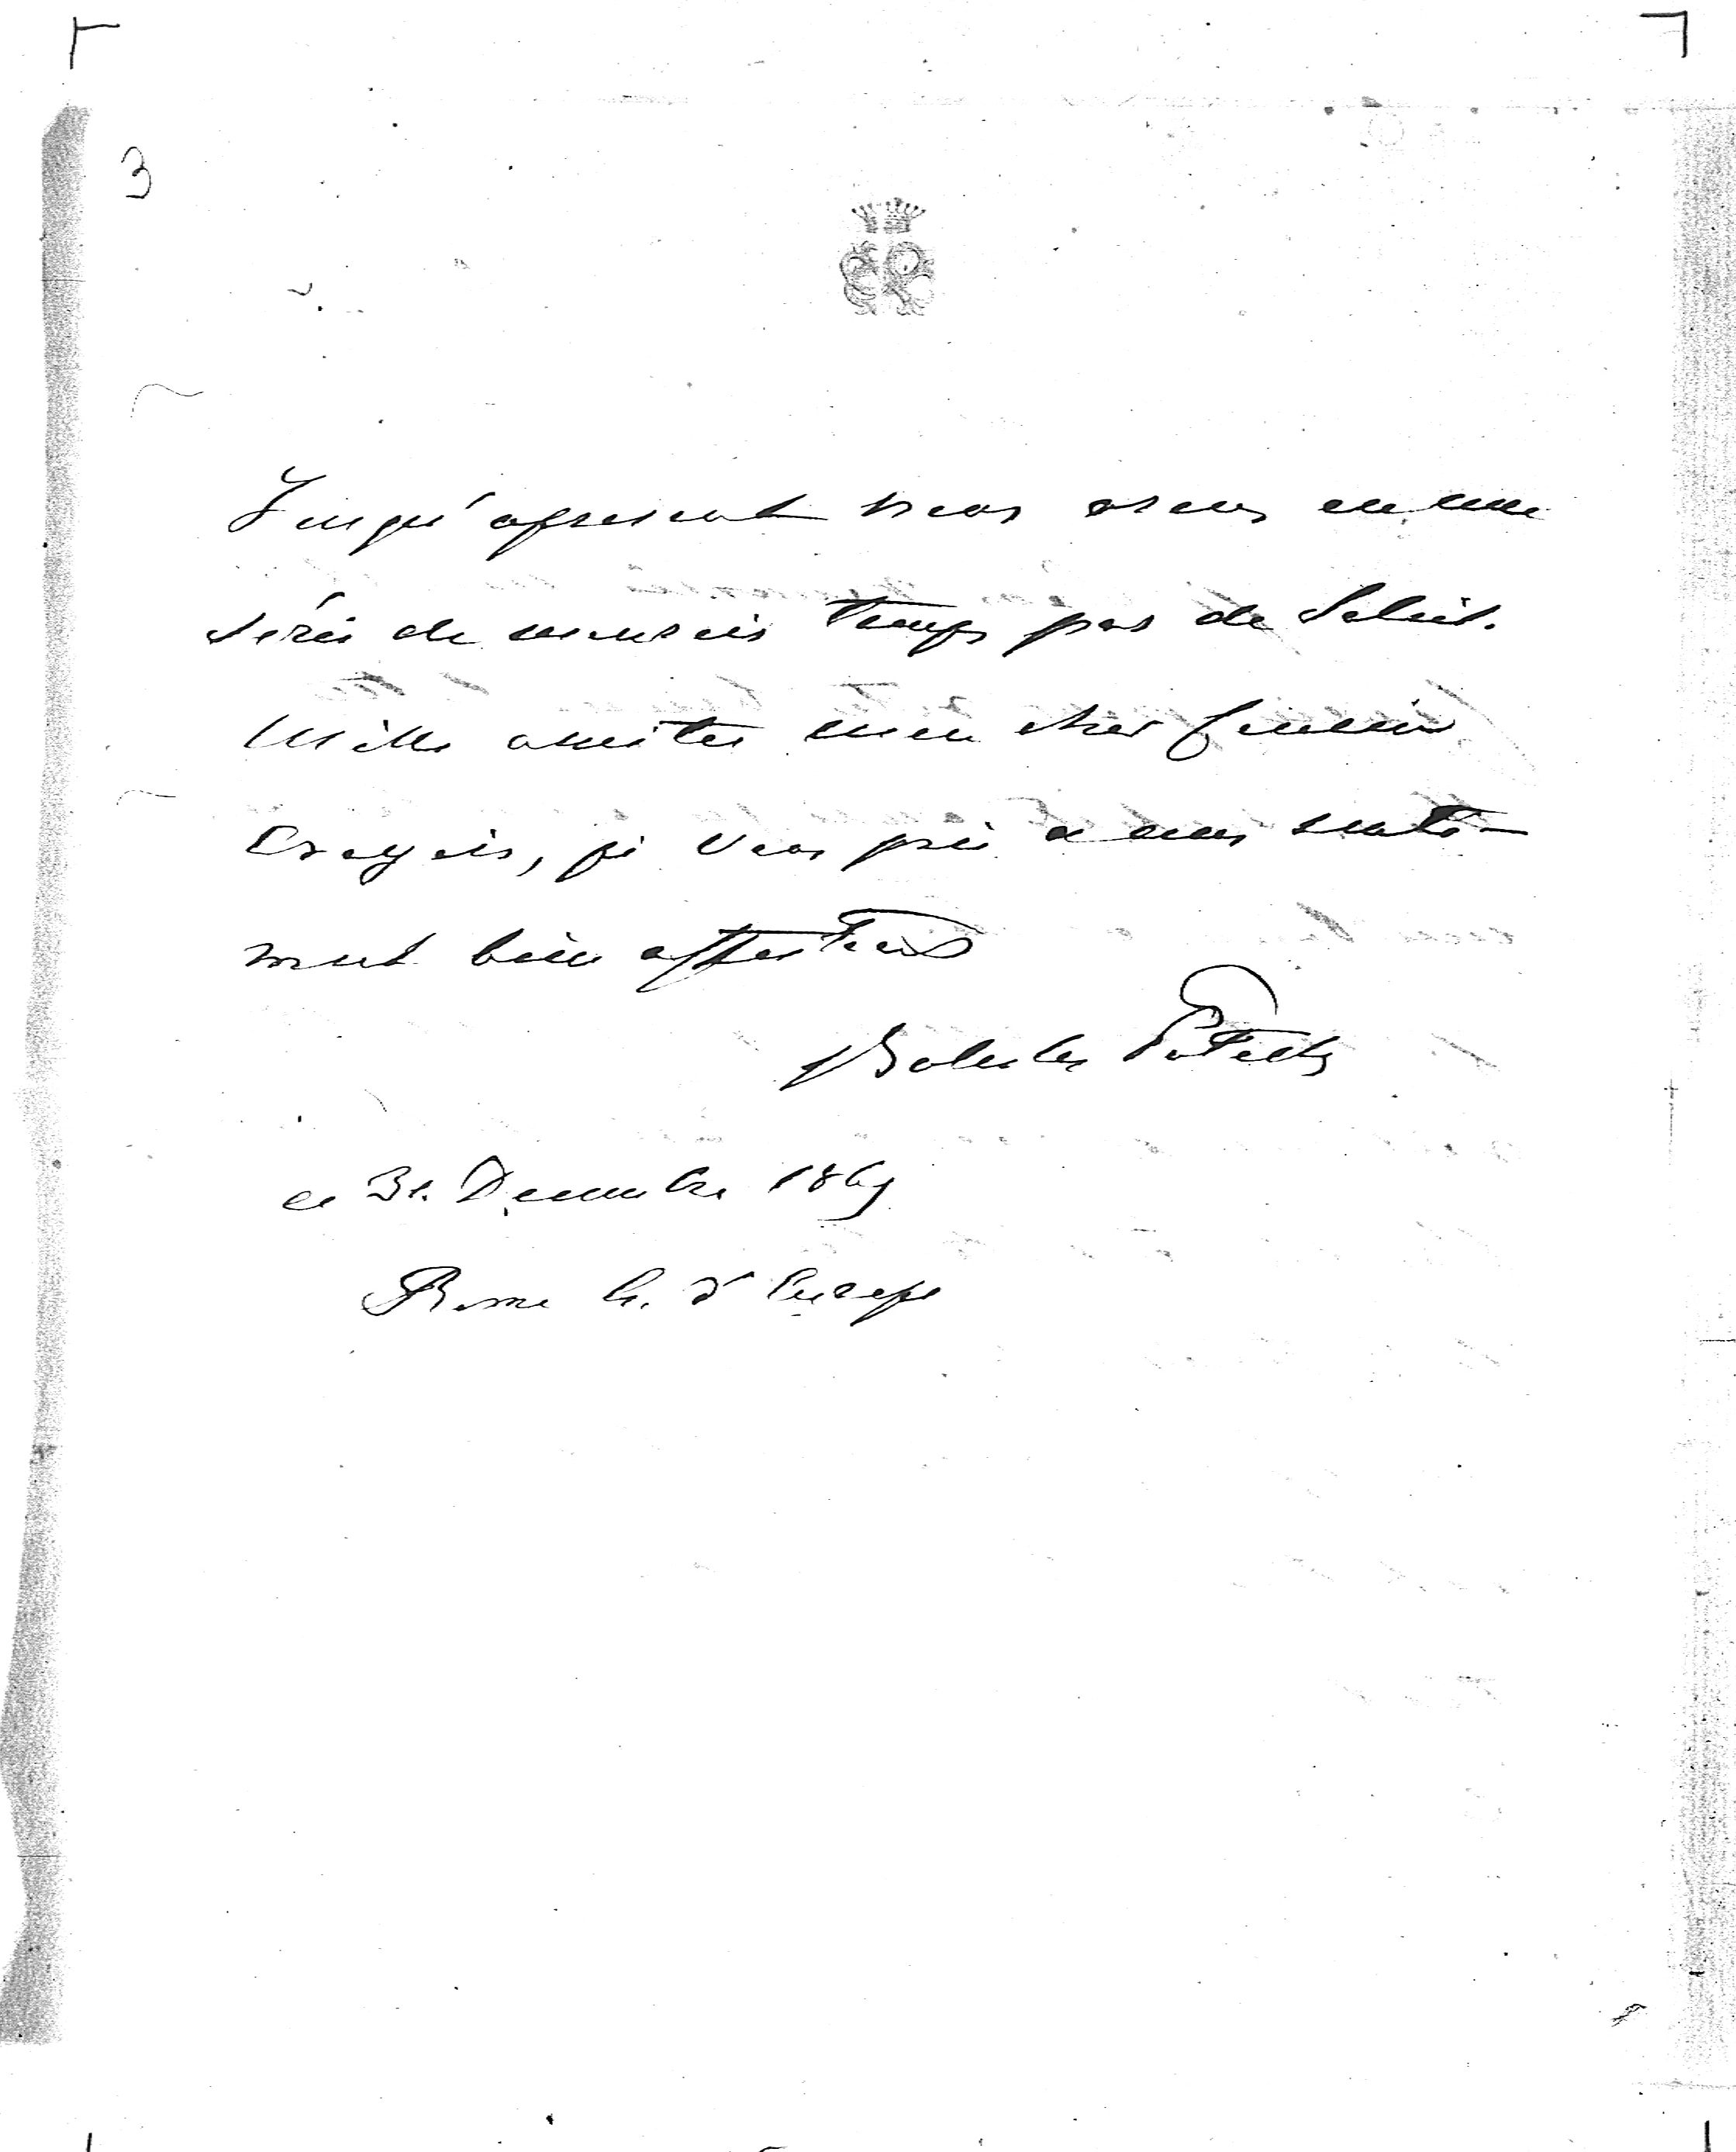 3
Jusqu'apresent nous avons eu une
série de mauvais temps pas de Soleil.
Mille amities mon cher
Croyez, je vous prie a mes senti-
ment bien affectueux
Boleslas Potocki
ce 31. Decembre 1869
Rome h. d'Europe